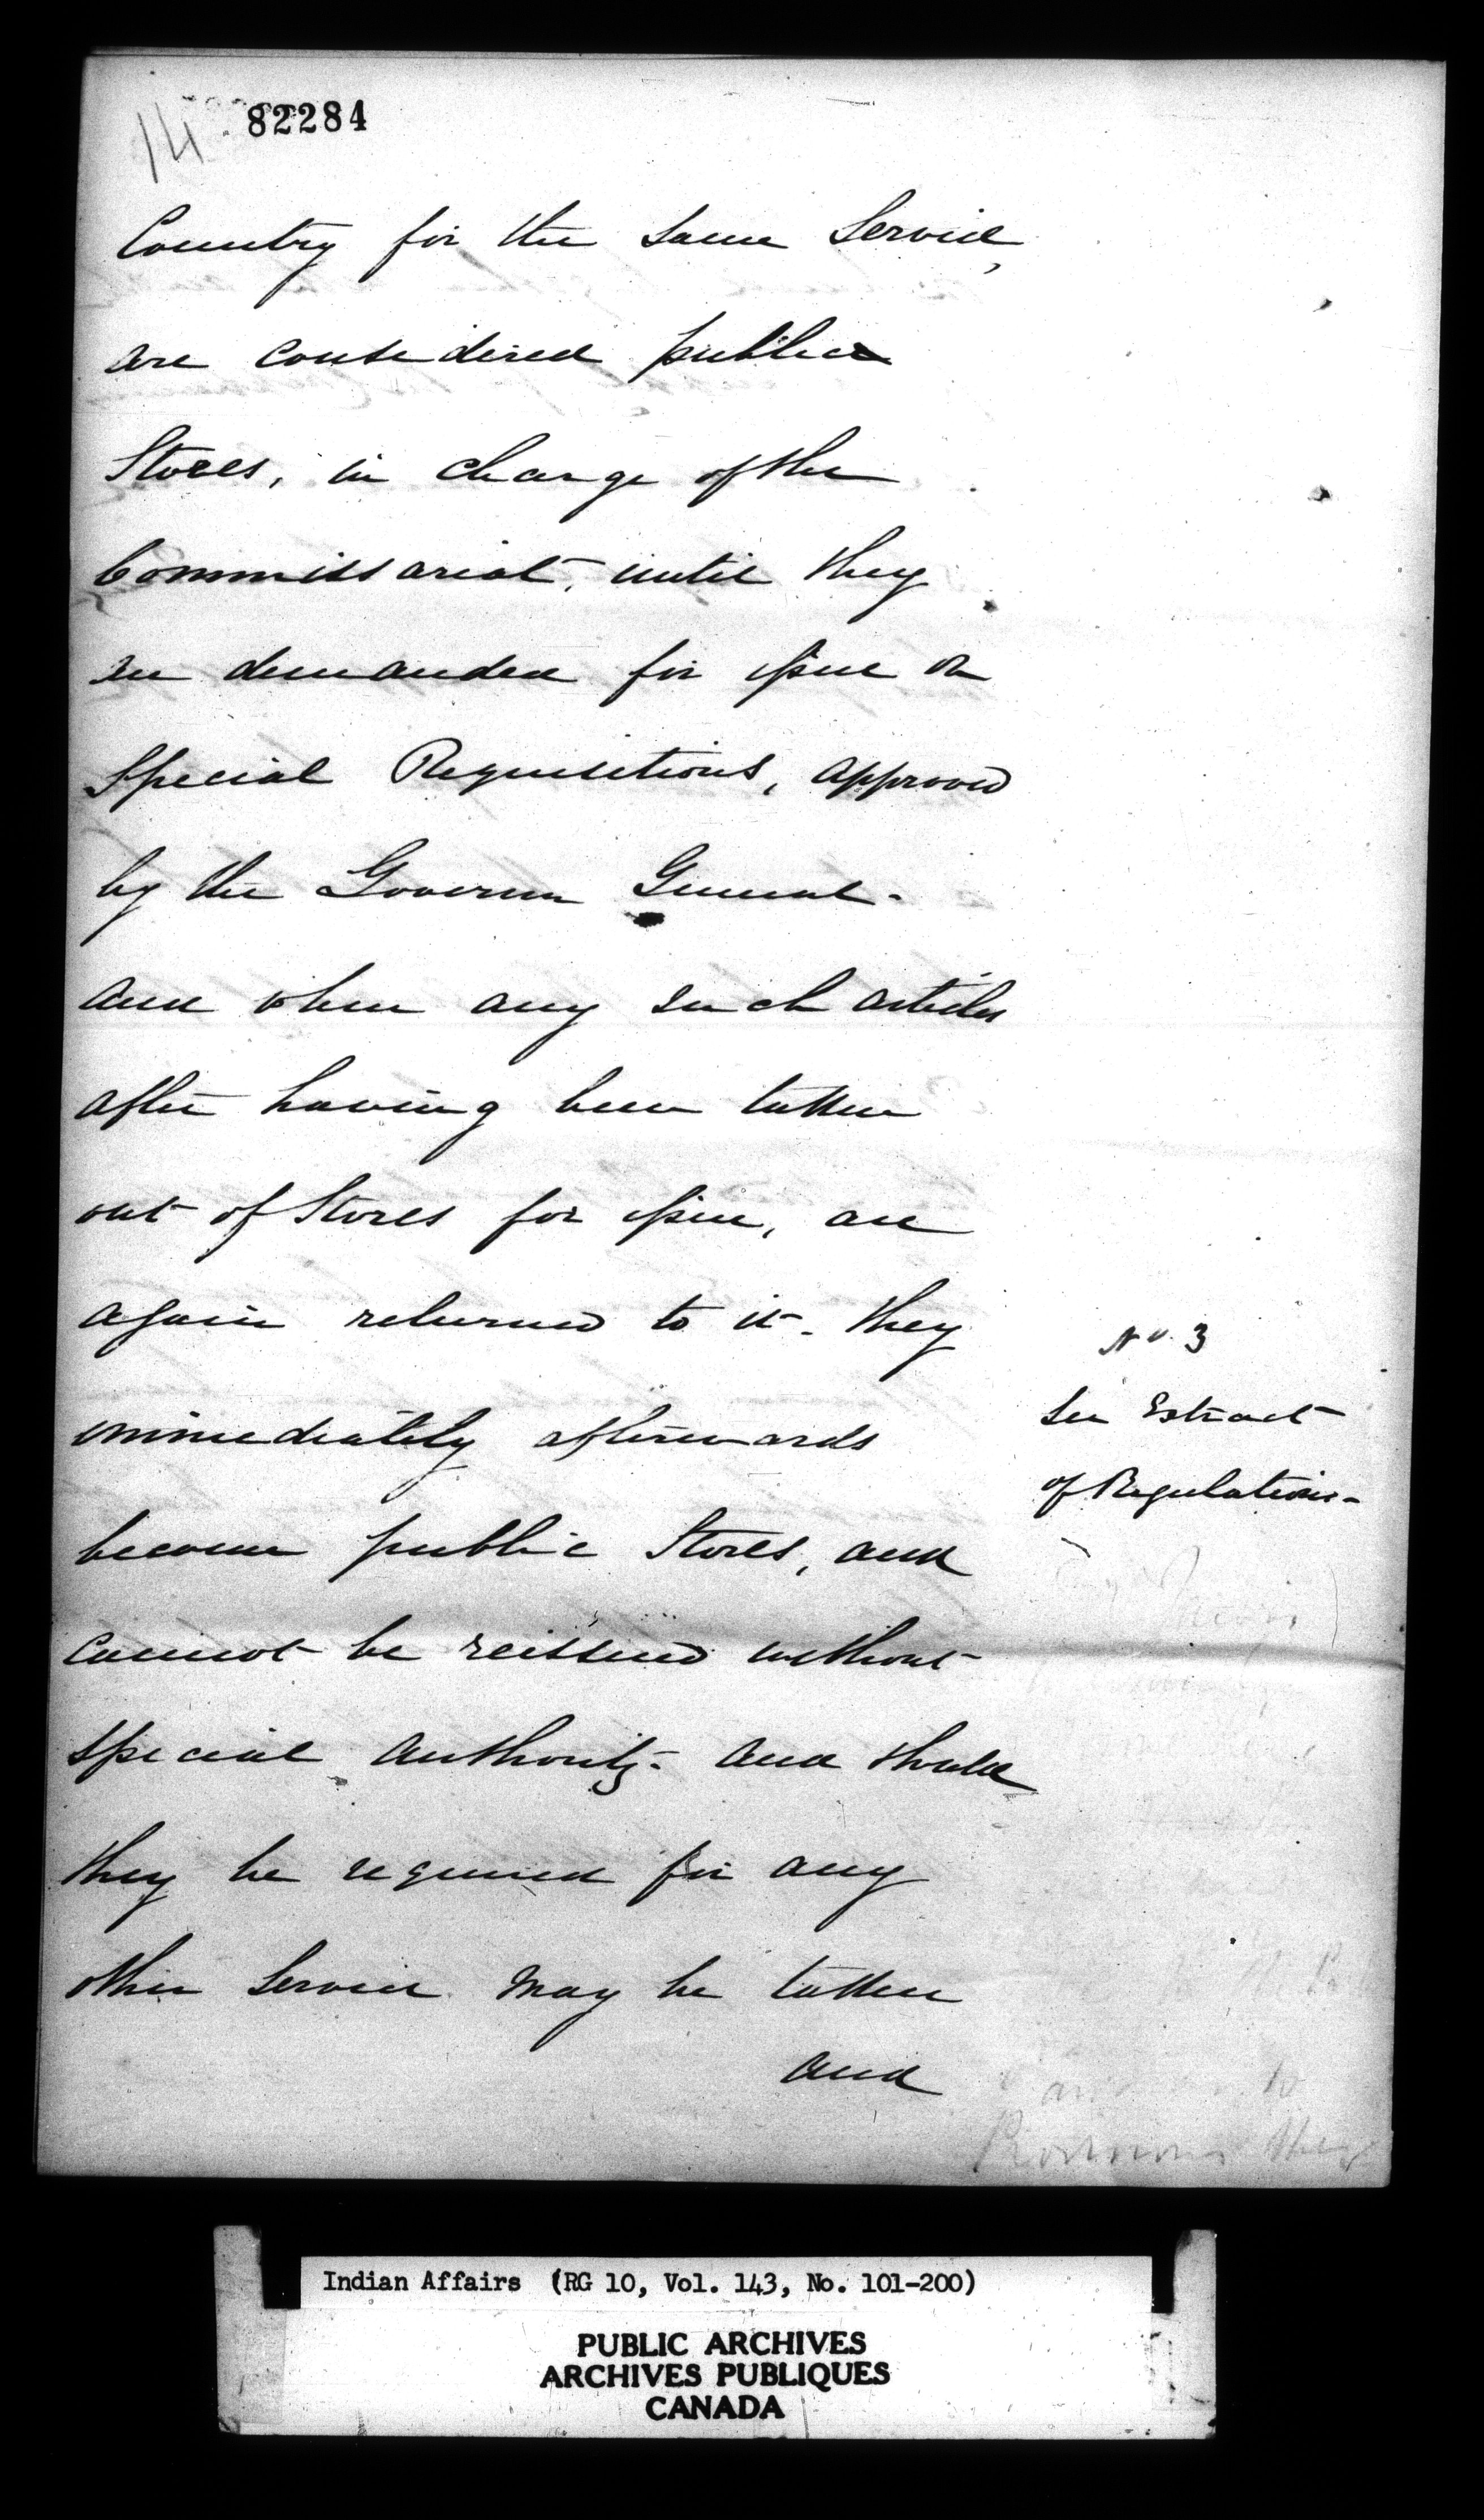 14
82284
Country for the same Service,
are considered public
Stores, in charge of the
Commissariat, until they
are demanded for issue on
Special Requisitions, approved
by the Governor General.
and when any such articles
after having been taken
out of Stores for issue, are
again returned to it. they
immediately afterwards
become public Stores, and
cannot be reissued without
special authority. and should
they be required for any
other Service may be taken
and
No 3
See Extract
of Regulations.
Indian Affairs (RG 10, Vol. 143, No. 101-200)
PUBLIC ARCHIVES
ARCHIVES PUBLIQUES
CANADA